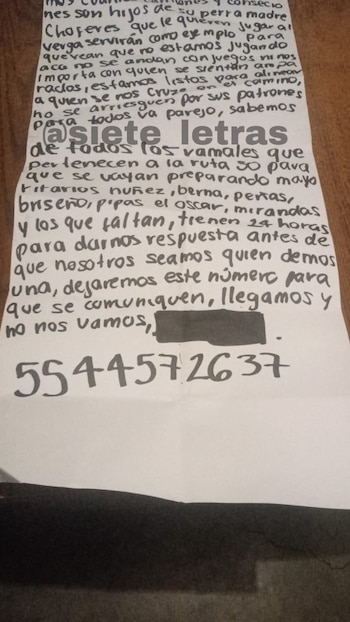 nes son hijos de su perra madre
Choferes que le quieren jugar al
verga servirán como ejemplo para
que vean que no estamos jugando
aca no se andan con juegos ni nos
importa con quien se sientan ampa
rados, estamos listos para alinear
a quien se nos cruze en el camino,
no se arriesguen por sus patrones
para todos va parejo, sabemos
@siete_letras
de todos los vamales que
pertenecen a la ruta 50 para
que se vayan preparando mayo
ritarios nuñez, berna, perras,
briseño, pipas el oscar, mirandas
y los que faltan, tienen 24 horas
para darnos respuesta antes de
que nosotros seamos quien demos
una, dejaremos este número para
que se comuniquen, llegamos y
no nos vamos,
5544572637